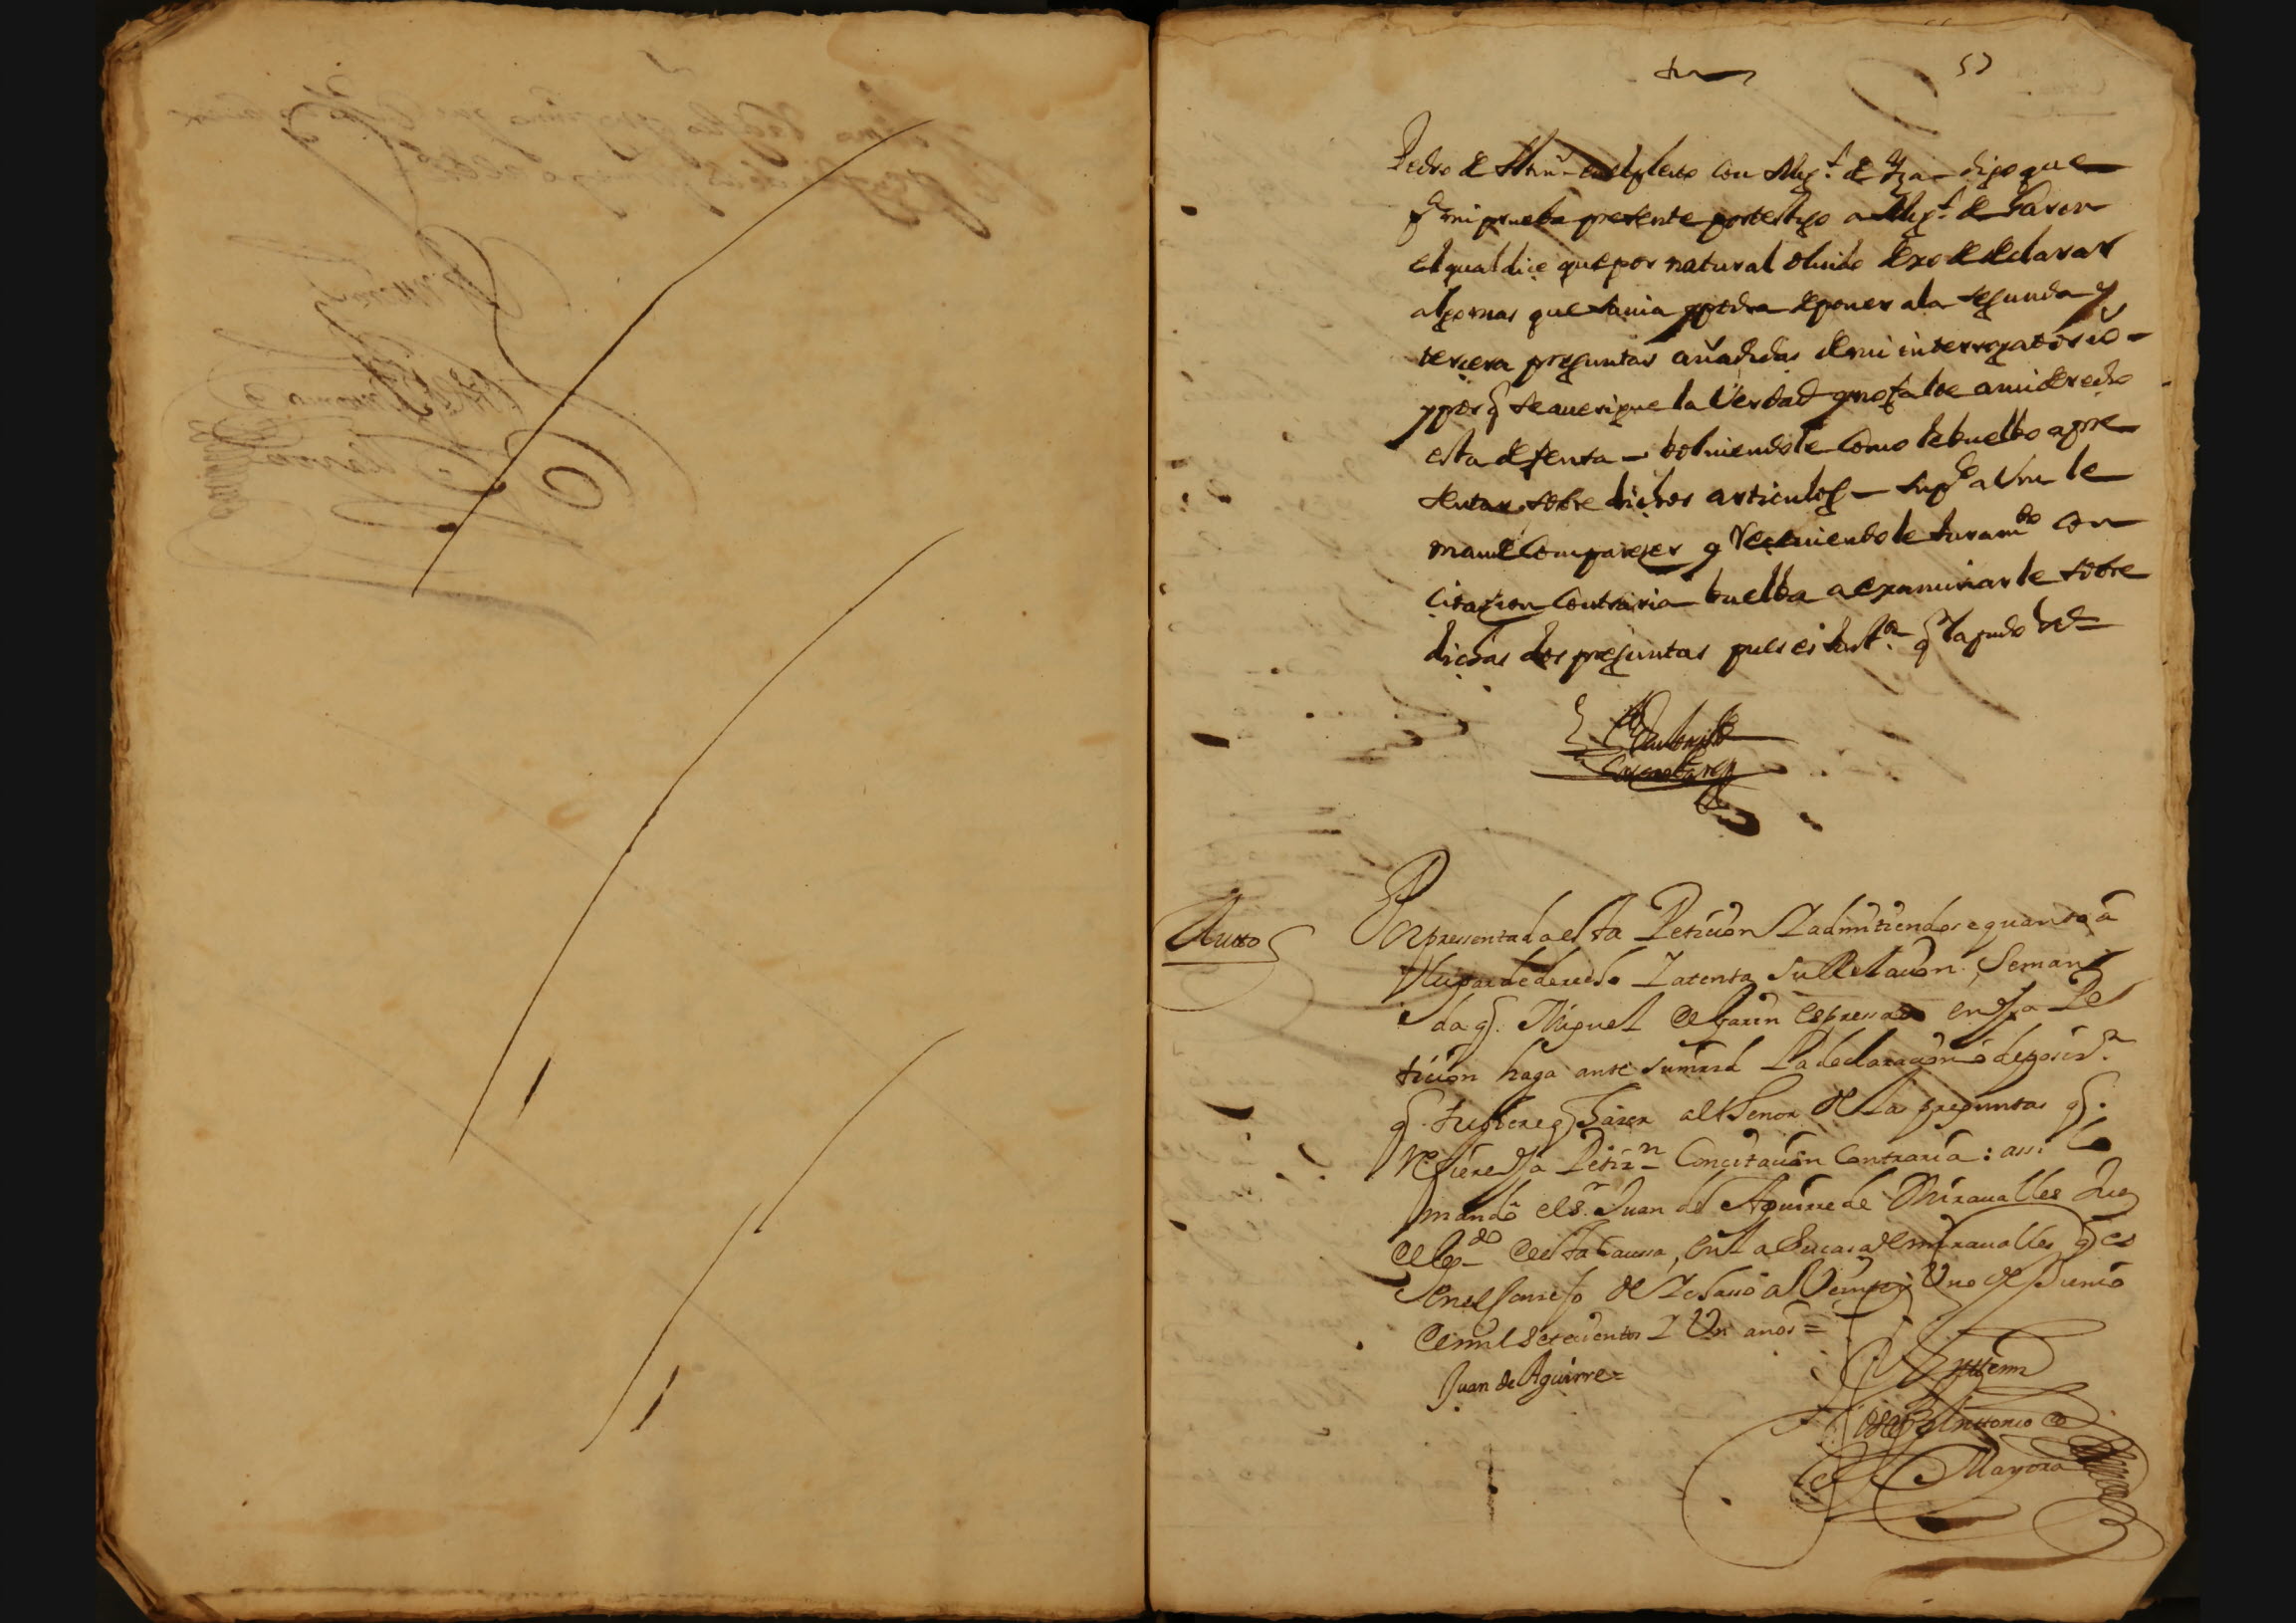 57
Pedro de en el pleito con Mig.l de digo que
p.a mi prueba presente por testigo a Mig.l de Garin
el qual dice que por natural oluido dexo de declarar
algo mas que sauia y podra deponer a la segunda y
tercera preguntas añadidas de mi interrogatorio -
y por q se auerigue la Verdad y no falte a mi derecho
esta defensa - boluiendole como le buelbo a pre
sentar sobre dichos articulos - sup.co a Vm le
mande comparezer y Reciuiendole juram.to con
citazion contraria buelba a examinarle sobre
dichas dos preguntas pues es just.a q la pido &a =
Autto
Por pressentada esta Peticion I admitiendose quanto a
lugar de derecho I atenta su Relacion, Seman
da q. Miguel de Garin espressado en dha Pe
ticion haga ante su mrd La declaracion o deposiz.n
q. tubiere q hazer al thenor de las preguntas q.
Refiere dha Petiz.n Con citacion Contraria: assi lo
mando el s.r Juan de Aguirre de Miraualles Juez
de esta Caussa, en la Su casa de miraualles q es
en el conzejo de a Veinte y Uno de Junio
de mil Setecientos I Un años =
Juan de Aguirre =
Ante mi
Antonio de
Mayora